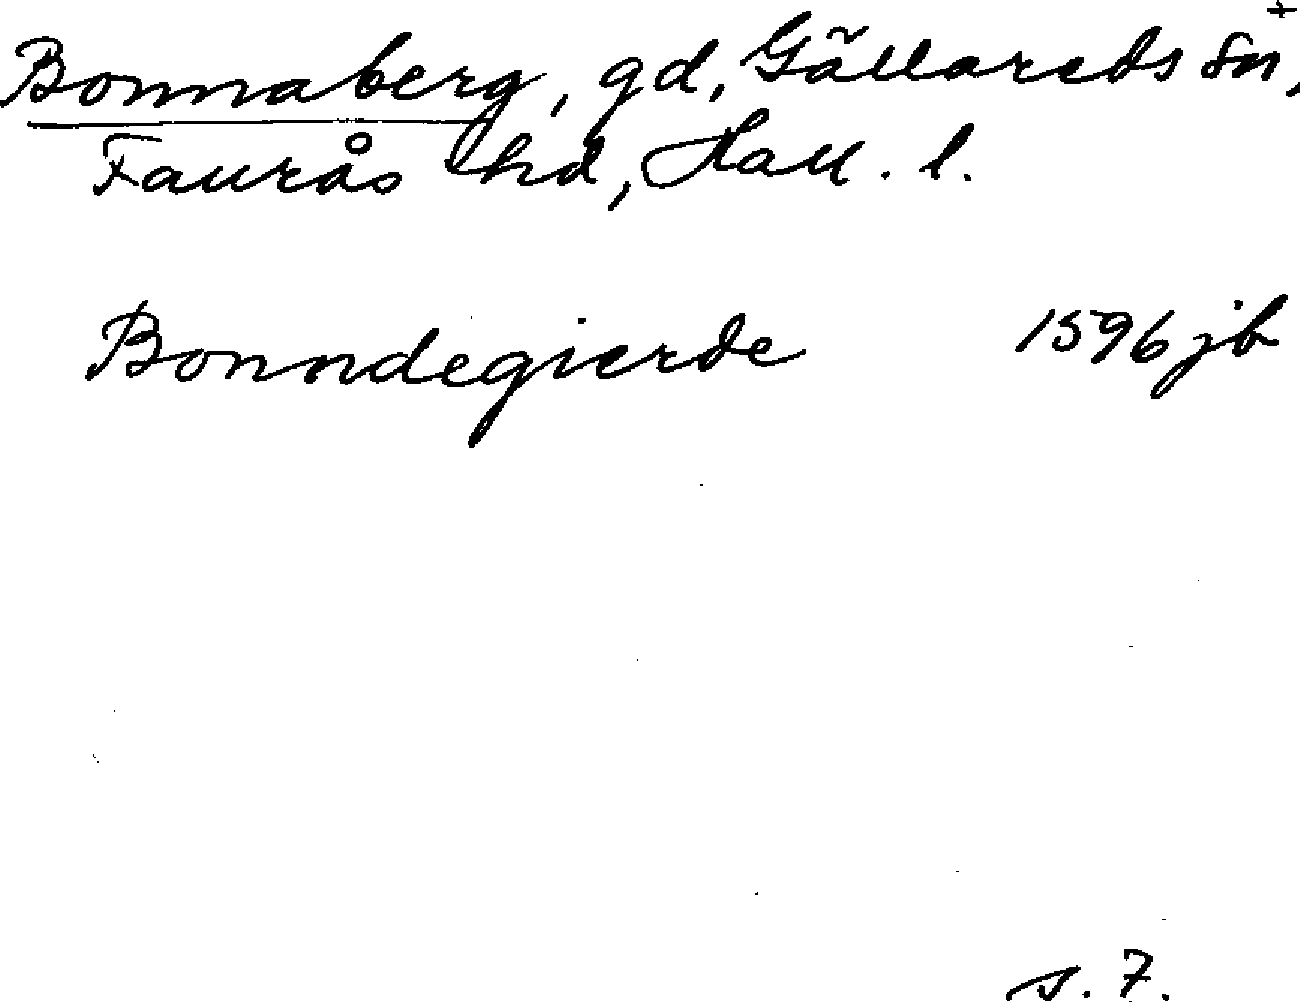 Bonnaberg, gd, Gällareds sn,+
Faurås hd, Hall. l.
Bonndegierde 1596 jb
s. 7.